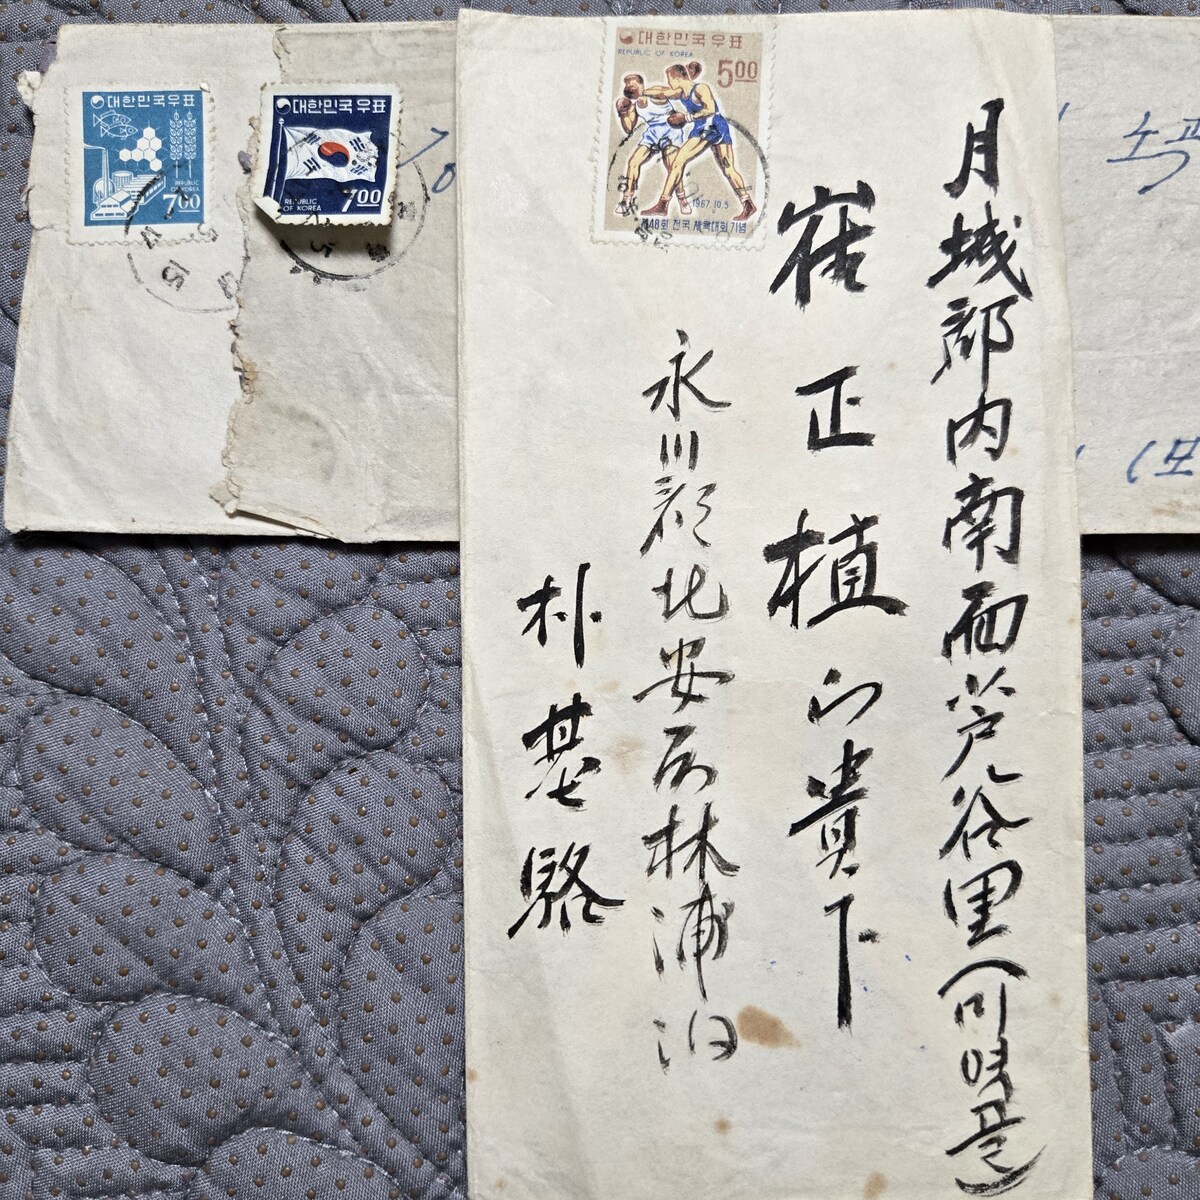 대한민국우표
REPUBLIC OF KOREA
7 00
대한민국우표
REPUBLIC OF KOREA
7 00
70
대한민국우표
REPUBLIC OF KOREA
5 00
1967.10.5
제48회 전국 체육대회기념
月城郡内南面芦谷里
崔正植 貴下
永川郡北安面林浦洞
朴基
노